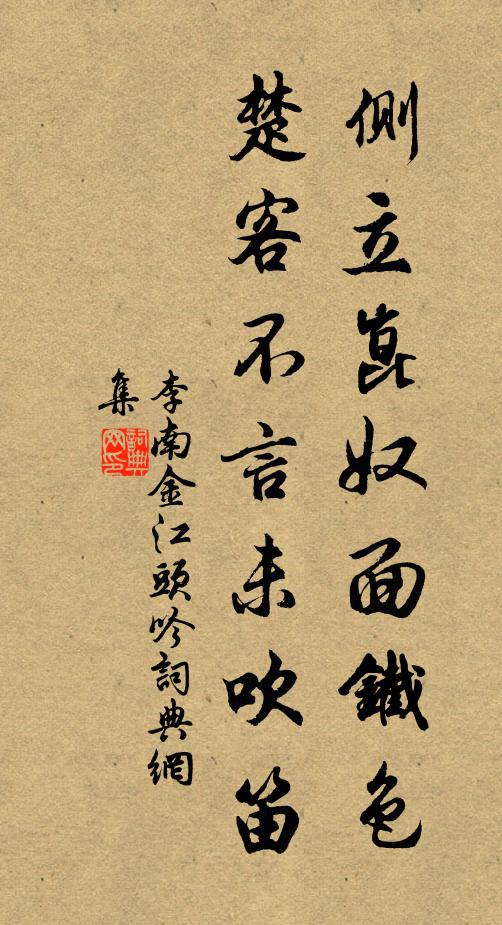 側立崑奴面鐵色
楚客不言未吹笛
李南金江頭吟詞典網
集
詞典
网印